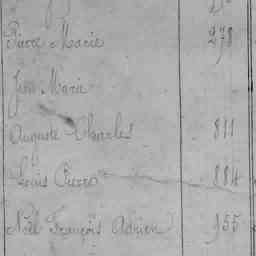 Pierre Marie 278
Jean Marie
Auguste Charles 811
Louis Pierre 884
Noël François Adrien 955